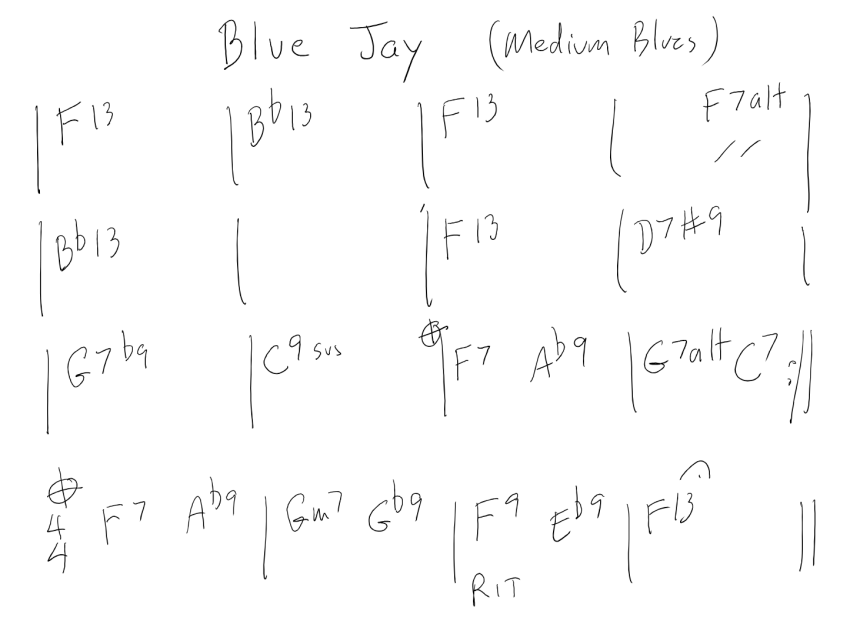 Blue Jay (Medium Blues)
| F13 | Bb13 | F13 | F7alt // |
| Bb13 | | F13 | D7#9 |
| G7b9 | C9sus 𝄌| F7 Ab9 | G7alt C7 :||
𝄌 4/4 F7 Ab9 | Gm7 Gb9 | F9 Eb9 | F13 𝄐 ||
RIT